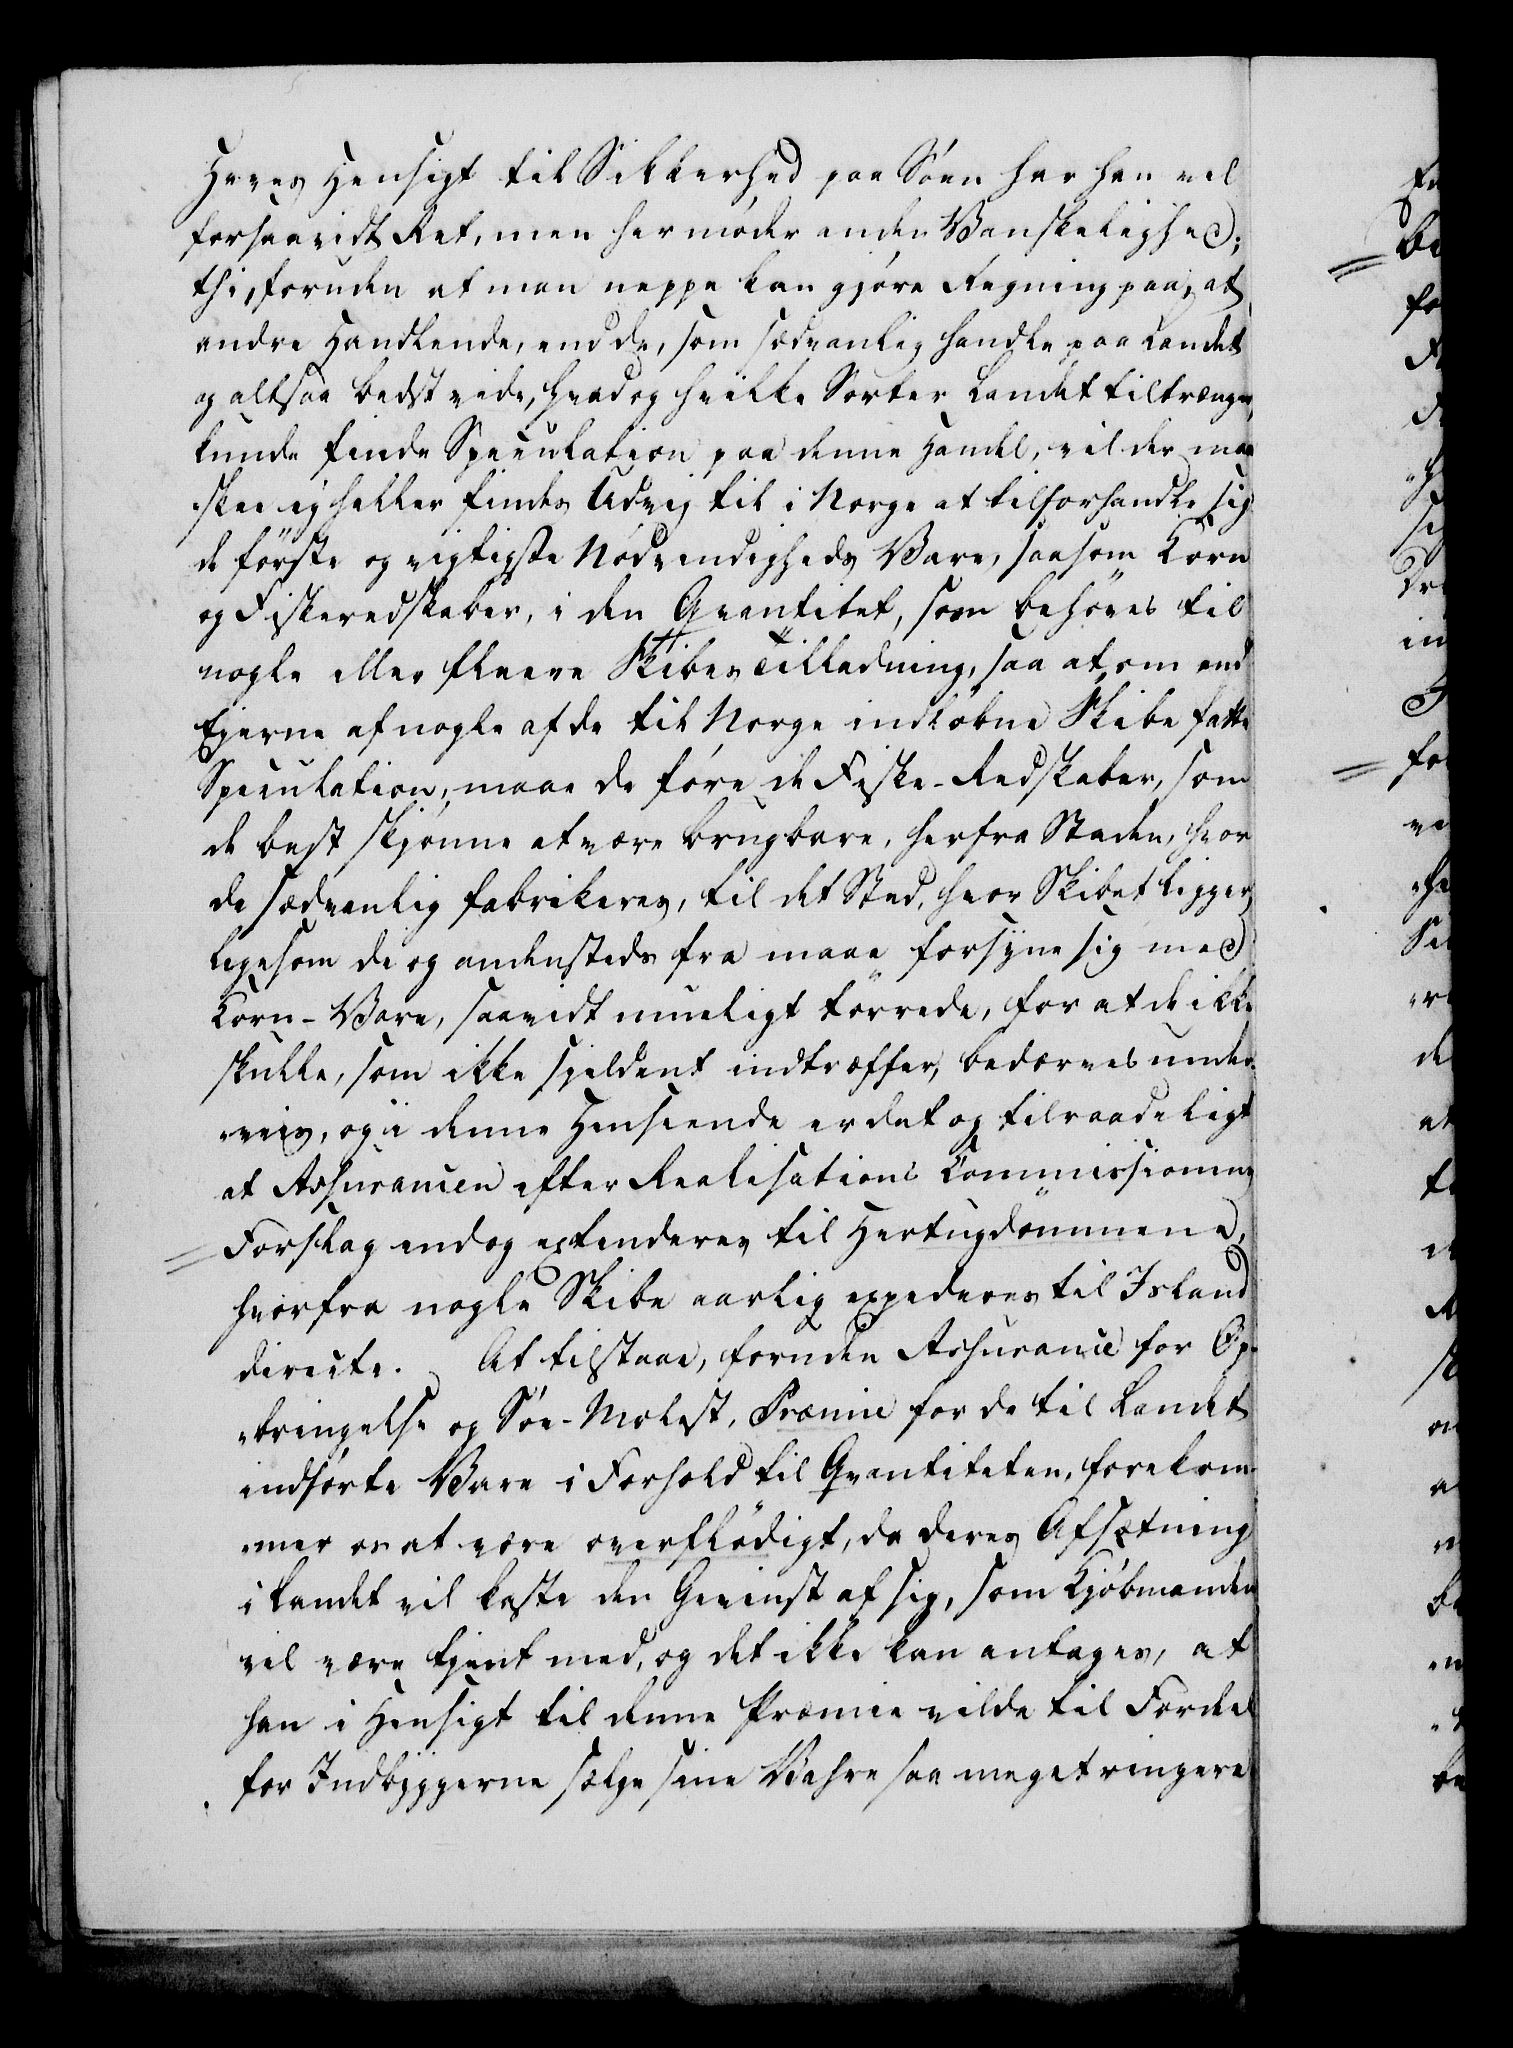 Haves Hensigt til Sikkerhed paa Söen har han vel
forsaavidt Ret, men her møder anden Vanskelighed;
thi, foruden at man neppe kan gjøre Regning paa, at
andre Handlende, end de, som sædvanlig handle paa Landet
og altsaa bedst vide, hvad og hvilke Sorter Landet tiltrænger,
kunde finde Speculation paa denne Handel, vil der maa
„skee ej heller findes Udvej til i Norge at tilforhandle sig
de første og vigtigste Nødvendigheds Vare, saasom Korn
og Fiskeredskaber, i den Qvantitet, som behöves til
nogle eller fleere Skibes Tilladning, saa at, om end
Ejerne af nogle af de til Norge indløbne Skibe fatte
Speculation, maae de føre de Fiske-Redskaber, som
de best skjønne at være brugbare, herfra Staden, hvor
de sædvanlig fabrikeres, til det Sted, hvor Skibet ligger,
ligesom de og andensteds fra maae forsyne sig med
Korn-Vare, saavidt mueligt tørrede, for at de ikke
skulle, som ikke sjeldent indtræffer, bedærves under
„veis, og i denne Henseende er det og tilraadeligt
at Assurancen efter Realisations Commissionens
Forslag endog extenderes til Hertugdømmene,
hvorfra nogle Skibe aarlig expederes til Island
directe. At tilstaae, foruden Assurance for Op-
„bringelse og Söe-Molest, Præmie for de til Landet
indførte Vare i Forhold til Qvantiteten, forekom-
„mer os at være overflødigt, da deres Afsætning
i Landet vil kaste den Gevinst af sig, som Kjöbmanden
vil være tjent med, og det ikke kan antages, at
han i Hensigt til denne Præmie vilde til Fordel
for Indbyggerne sælge sine Vahre saa meget ringere